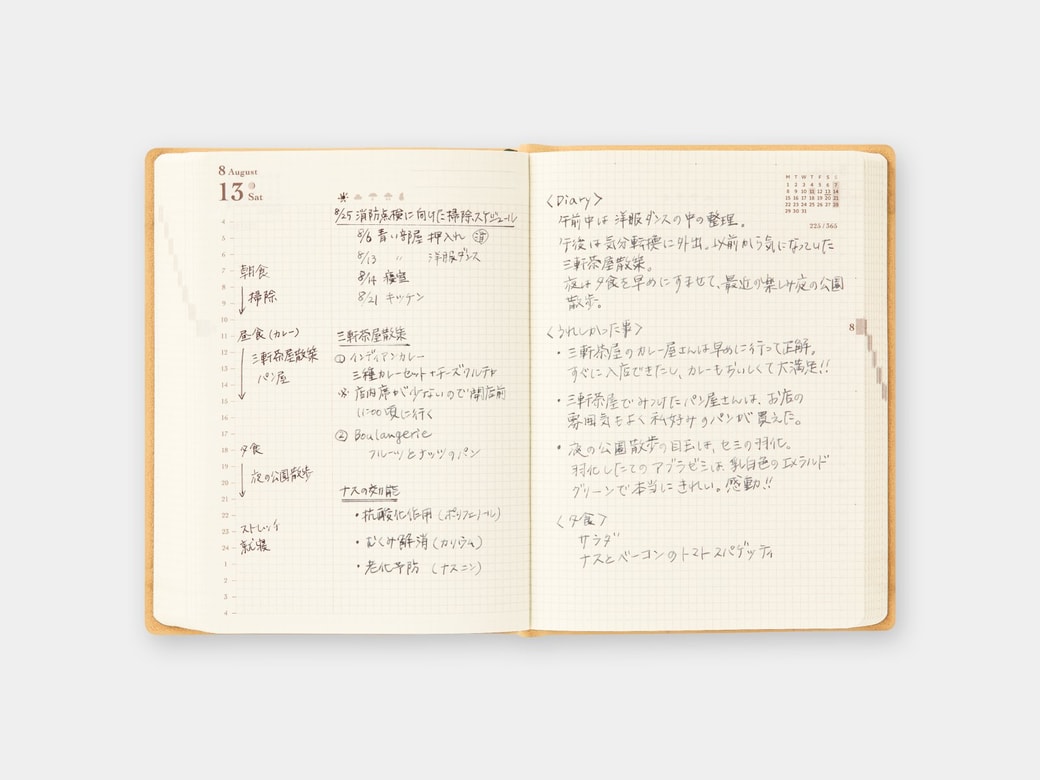 8 August
13 Sat
4
5
6
7 朝食
8
9 掃除
10
11 昼食(カレー)
12 三軒茶屋散策
13 パン屋
14
15
16
17
18 夕食
19
20 夜の公園散歩
21
22
23 ストレッチ
24 就寝
1
2
3
4
8/25 消防点検に向けた掃除スケジュール
8/6 青い部屋 押入れ 済
8/13 〃 洋服ダンス
8/14 寝室
8/21 キッチン
三軒茶屋散策
① インディアンカレー
三種カレーセット+チーズクルチャ
※ 店内席が少ないので開店前
11:00頃に行く
② Boulangerie
フルーツとナッツのパン
ナスの効能
・抗酸化作用(ポリフェノール)
・むくみ解消(カリウム)
・老化予防(ナスニン)
M T W T F S S
1 2 3 4 5 6 7
8 9 10 11 12 13 14
15 16 17 18 19 20 21
22 23 24 25 26 27 28
29 30 31
225/365
<Diary>
午前中は洋服ダンスの中の整理。
午後は気分転換に外出。以前から気になっていた
三軒茶屋散策。
夜は夕食を早めにすませて、最近の楽しみ夜の公園
散歩。
<うれしかった事>
・三軒茶屋のカレー屋さんは早めに行って正解。
すぐに入店できたし、カレーもおいしくて大満足!!
・三軒茶屋でみつけたパン屋さんは、お店の
雰囲気もよく私好みのパンが買えた。
・夜の公園散歩の目玉は、セミの羽化。
羽化したてのアブラゼミは、乳白色のエメラルド
グリーンで本当にきれい。感動!!
<夕食>
サラダ
ナスとベーコンのトマトスパゲッティ
8